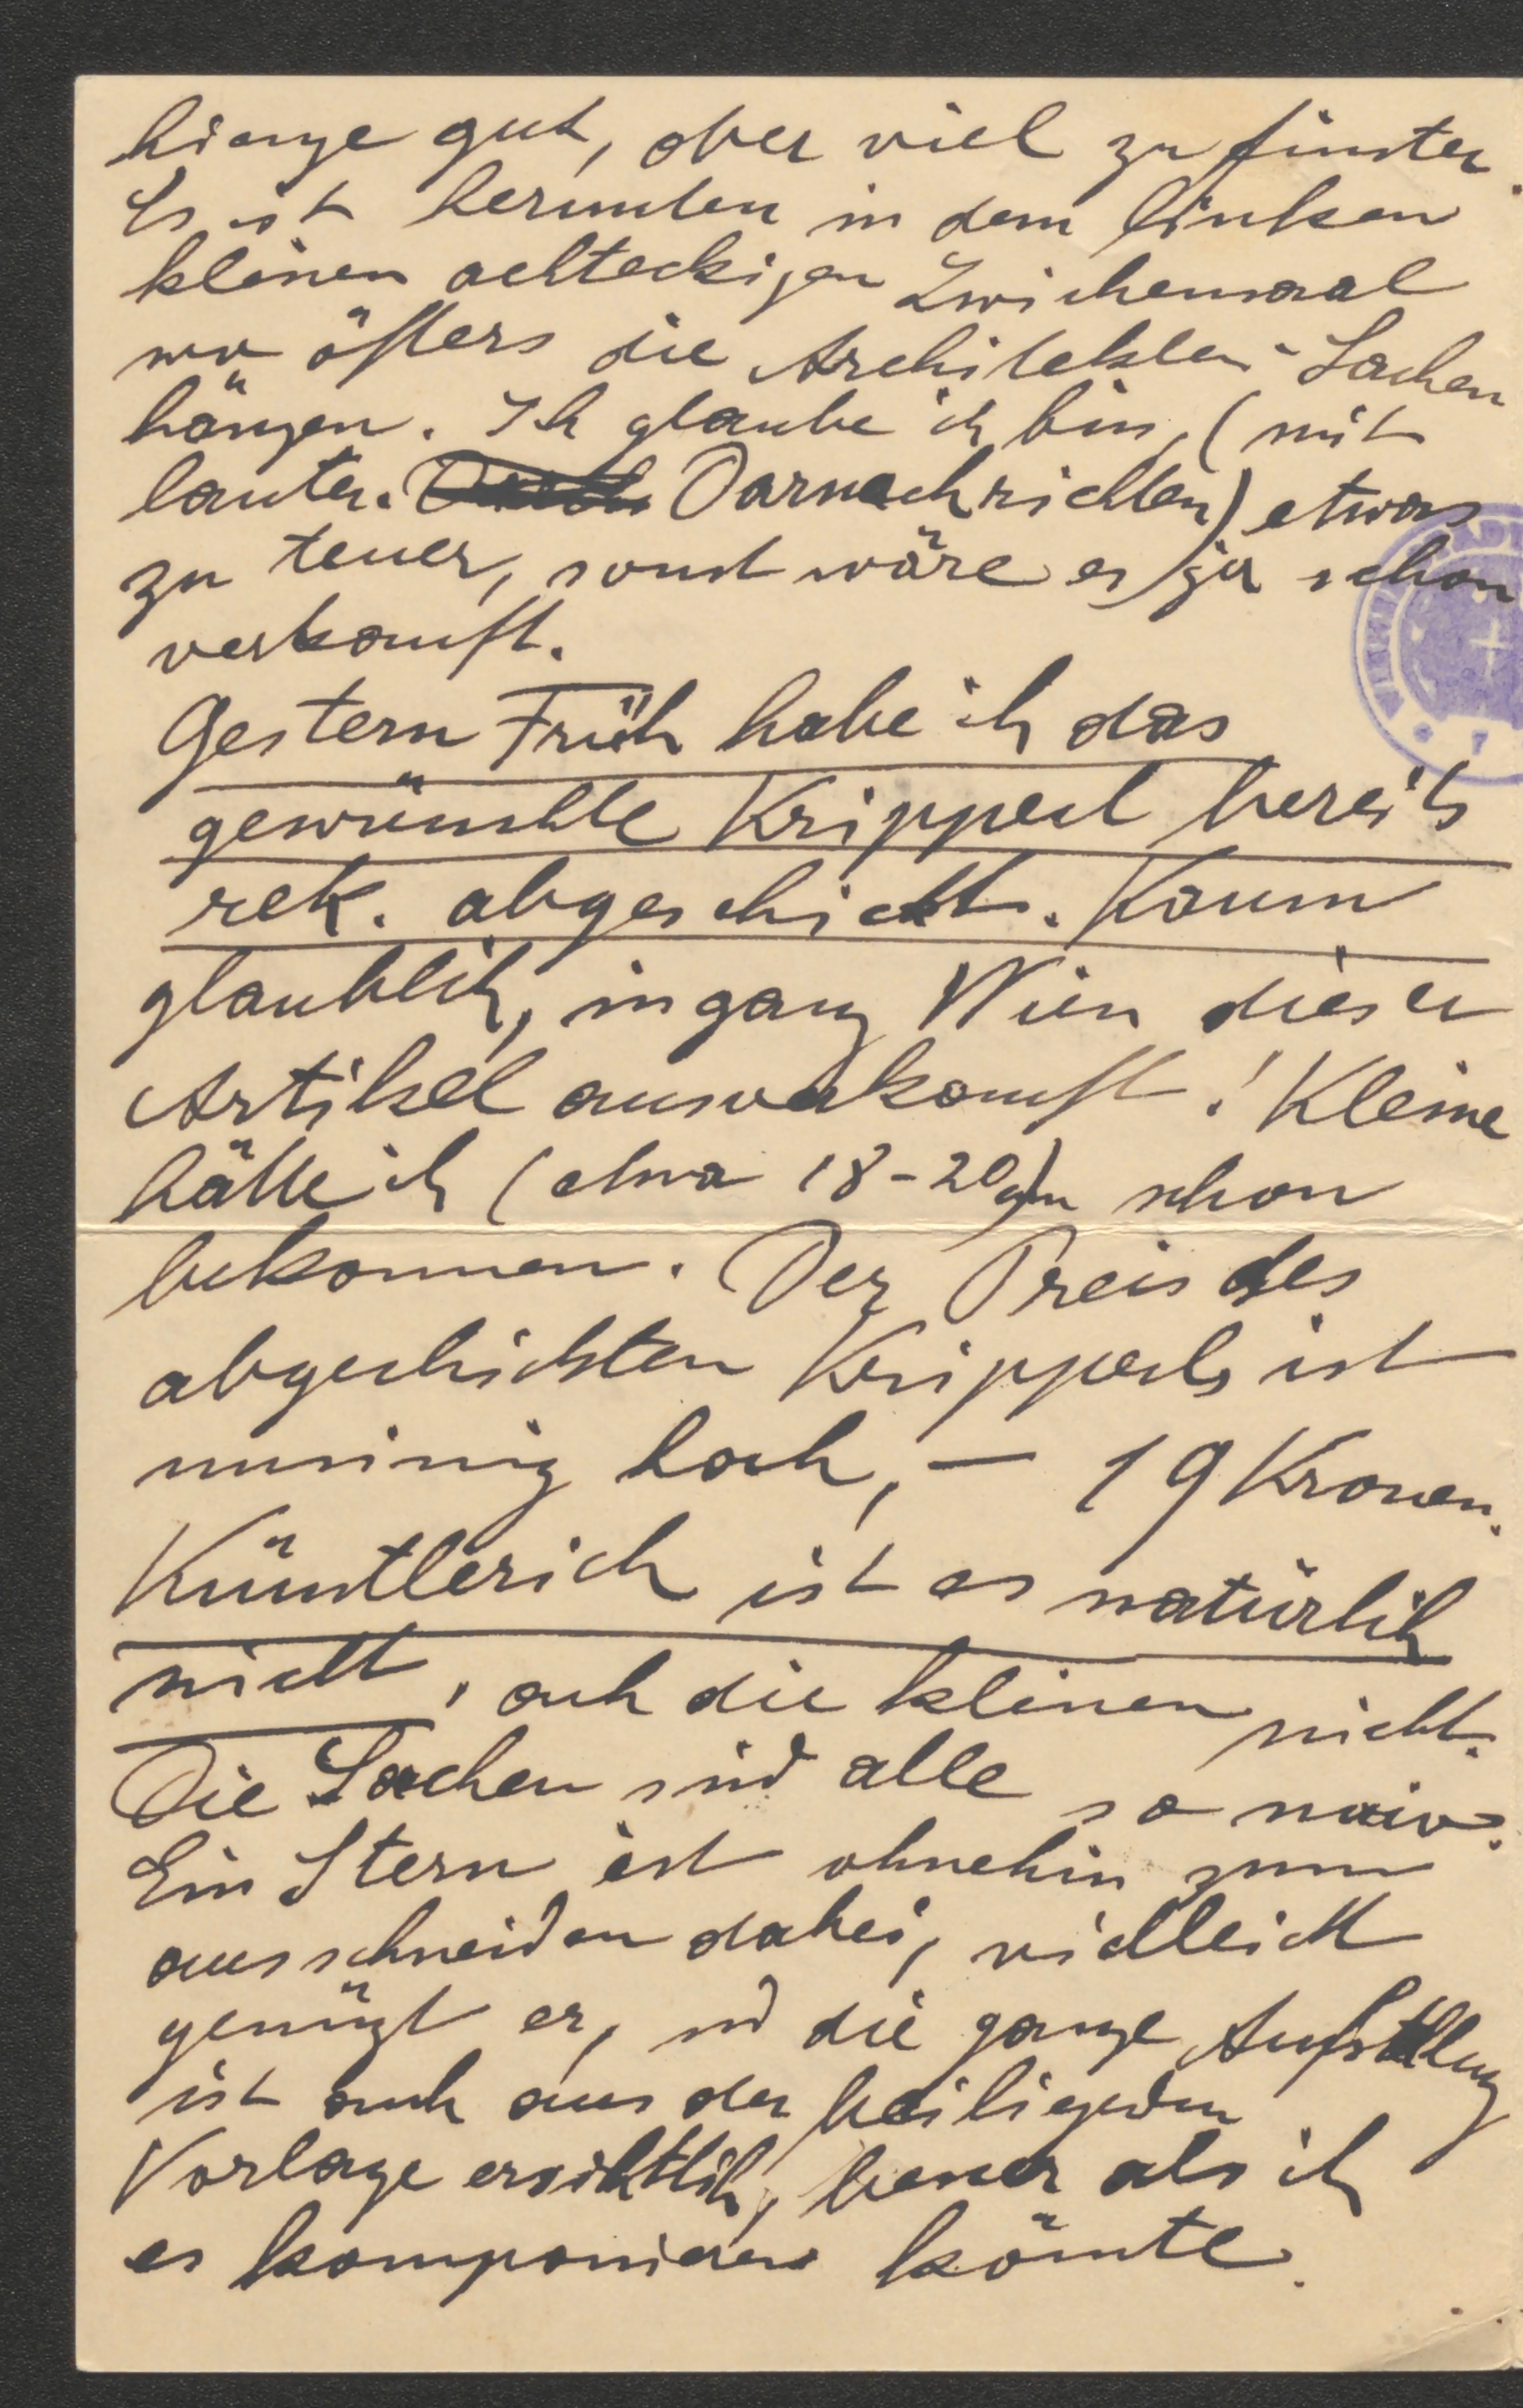 hienge gut, aber viel zu finster.
Es ist herunten in dem linken
kleinen achteckigen Zwichensaal
wo öfters die Architekten-Sachen
hängen. Ich glaube ich bin, (mit
lauter. Darnachrichten) etwas
zu teuer, sonst wäre es ja schon
verkauft.
Gestern Früh habe ich das
gewünschte Kripperl bereits
rek. abgeschickt. Kaum
glaublich, in ganz Wien dieser
Artikel ausverkauft! Kleine
hätte ich (etwa 18-20 c/m) schon
bekommen. Der Preis des
abgeschickten Kripperls ist
unsinnig hoch, – 19 Kronen.
Künstlerich ist es natürlich
nicht, auch die kleinen nicht.
Die Sachen sind alle so naiv.
Ein Stern ist ohnehin zum
ausschneiden dabei, vielleicht
genügt er, und die ganze Aufstellung
ist auch aus der beiliegenden
Vorlage ersichtlich, besser als ich
es komponieren könnte.